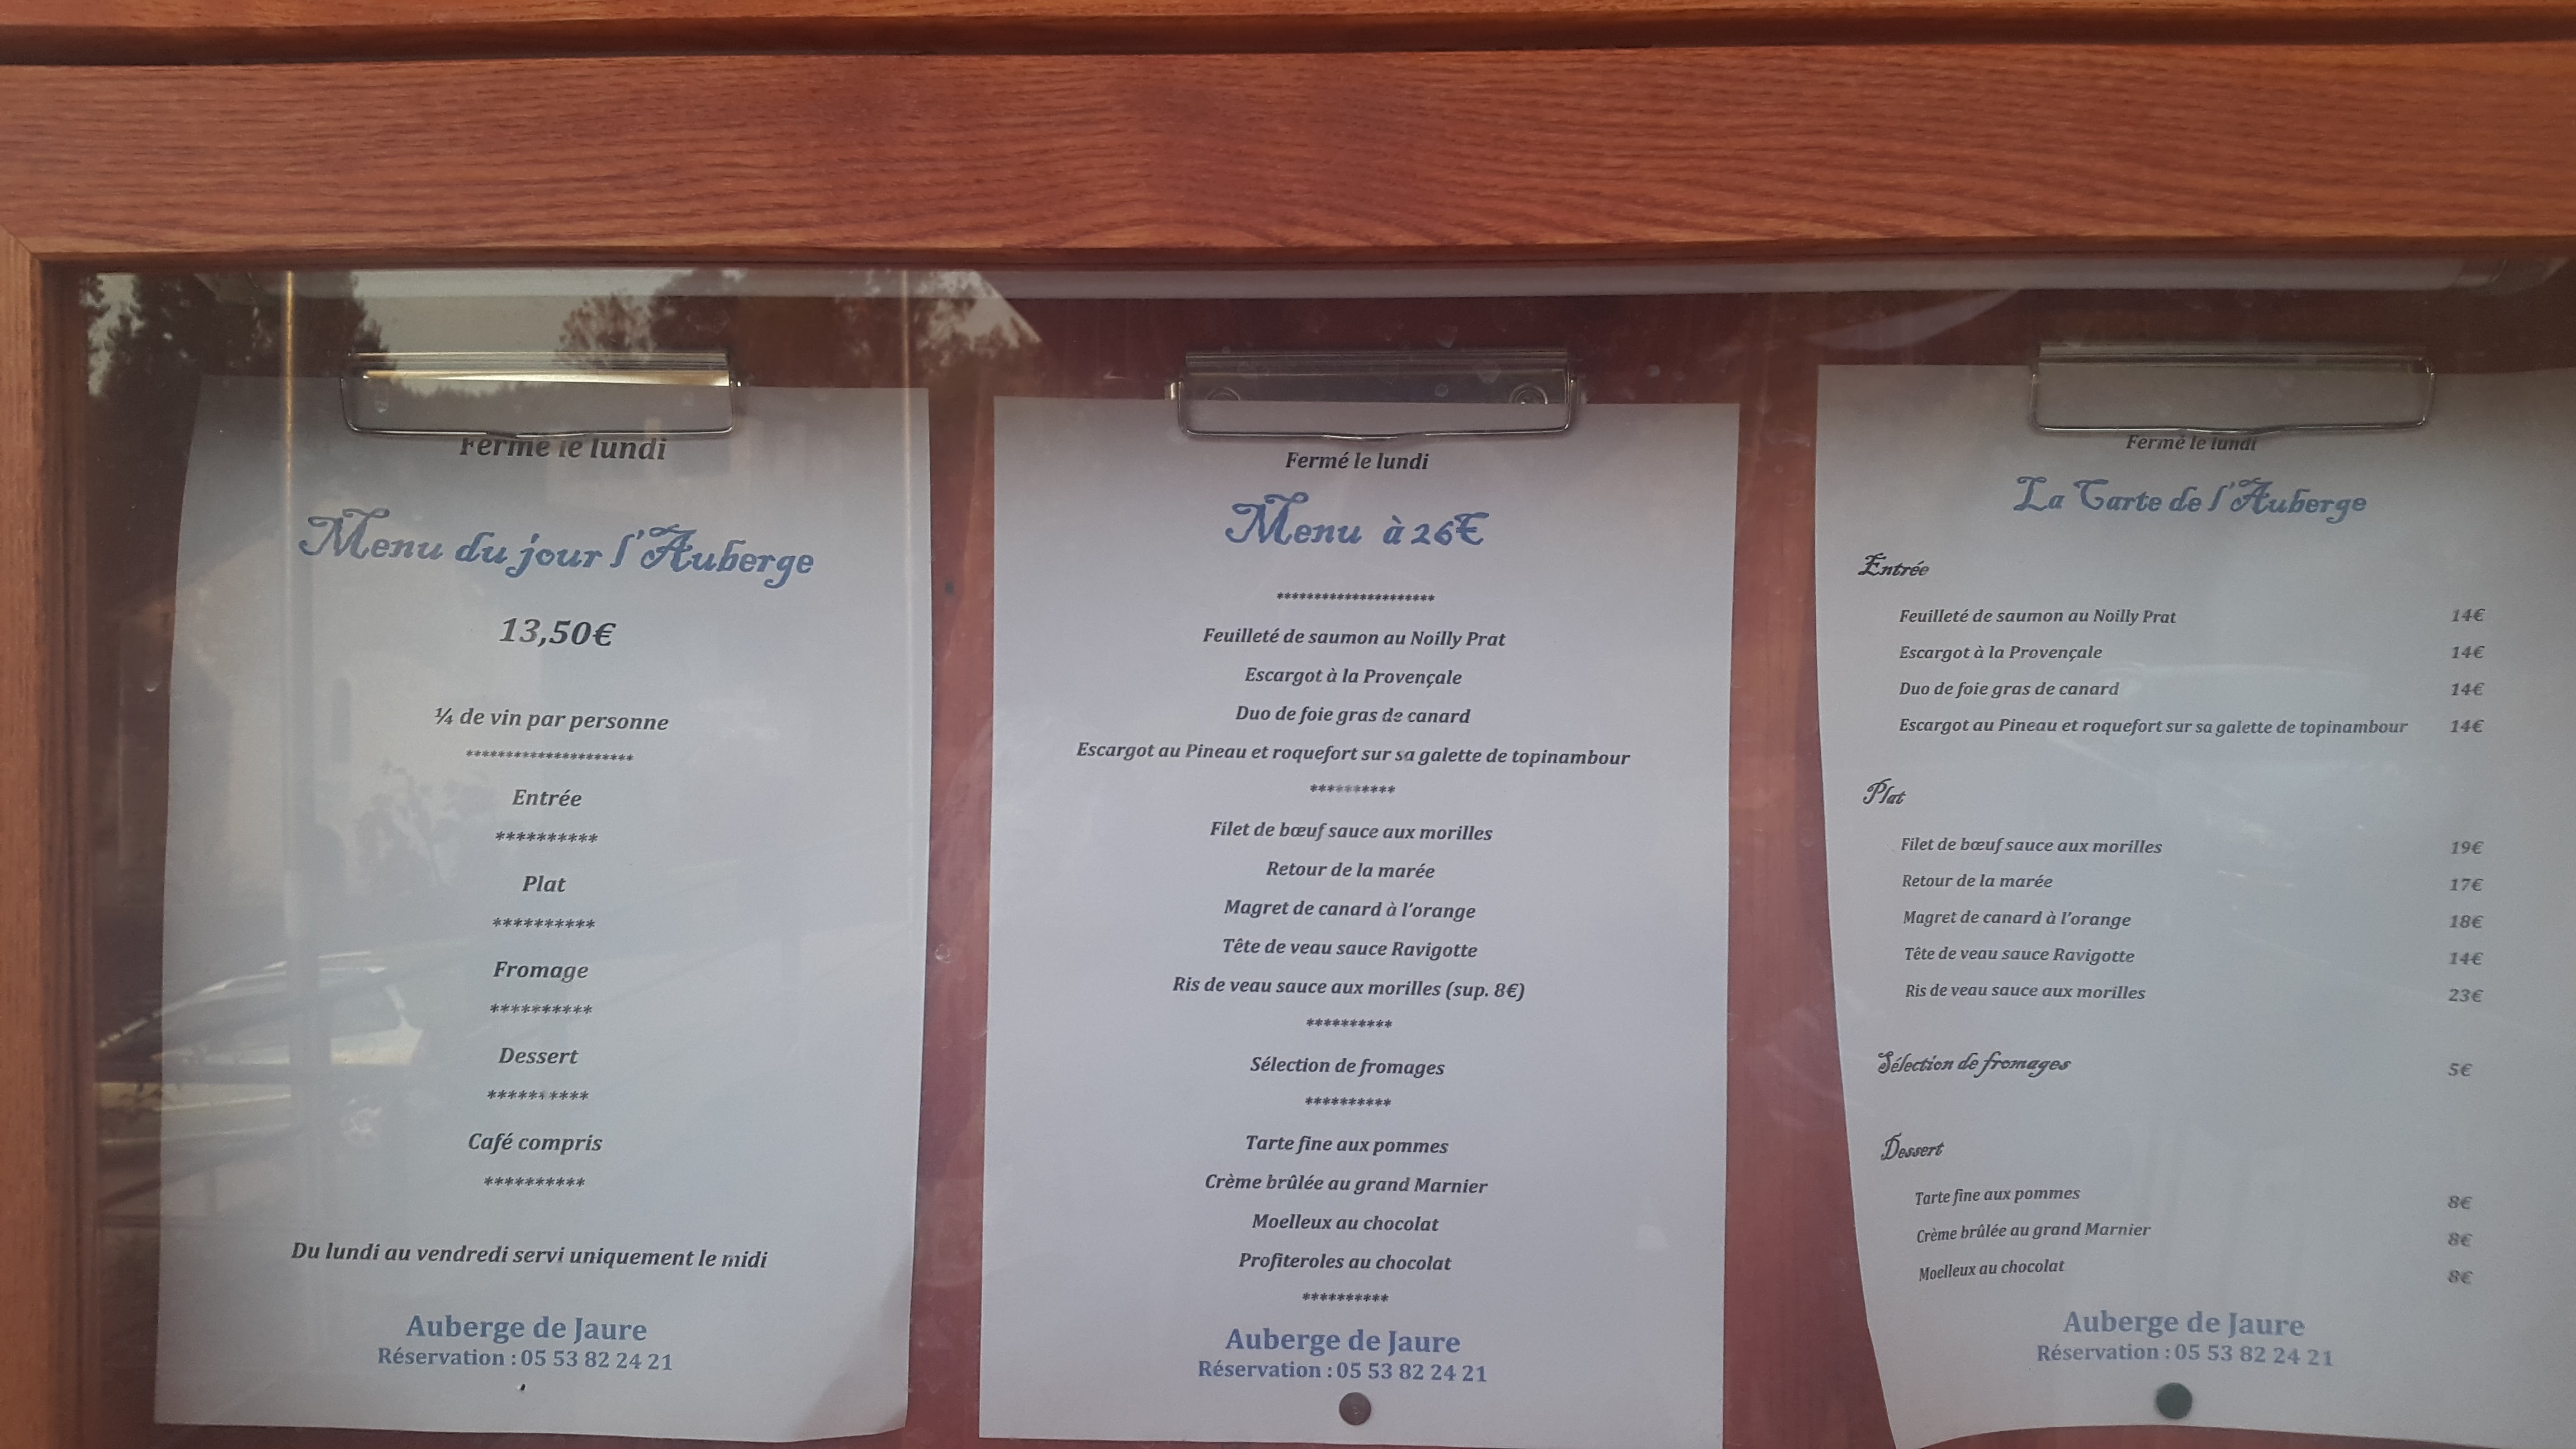 Fermé le lundi
Menu du jour l'Auberge
13,50€
¼ de vin par personne
*********************
Entrée
**********
Plat
**********
Fromage
**********
Dessert
**********
Café compris
**********
Du lundi au vendredi servi uniquement le midi
Auberge de Jaure
Réservation : 05 53 82 24 21
Fermé le lundi
Menu à 26€
*********************
Feuilleté de saumon au Noilly Prat
Escargot à la Provençale
Duo de foie gras de canard
Escargot au Pineau et roquefort sur sa galette de topinambour
**********
Filet de bœuf sauce aux morilles
Retour de la marée
Magret de canard à l'orange
Tête de veau sauce Ravigotte
Ris de veau sauce aux morilles (sup. 8€)
**********
Sélection de fromages
**********
Tarte fine aux pommes
Crème brûlée au grand Marnier
Moelleux au chocolat
Profiteroles au chocolat
**********
Auberge de Jaure
Réservation : 05 53 82 24 21
Fermé le lundi
La Carte de l'Auberge
Entrée
Feuilleté de saumon au Noilly Prat 14€
Escargot à la Provençale 14€
Duo de foie gras de canard 14€
Escargot au Pineau et roquefort sur sa galette de topinambour 14€
Plat
Filet de bœuf sauce aux morilles 19€
Retour de la marée 17€
Magret de canard à l'orange 18€
Tête de veau sauce Ravigotte 14€
Ris de veau sauce aux morilles 23€
Sélection de fromages 5€
Dessert
Tarte fine aux pommes 8€
Crème brûlée au grand Marnier 8€
Moelleux au chocolat 8€
Auberge de Jaure
Réservation : 05 53 82 24 21